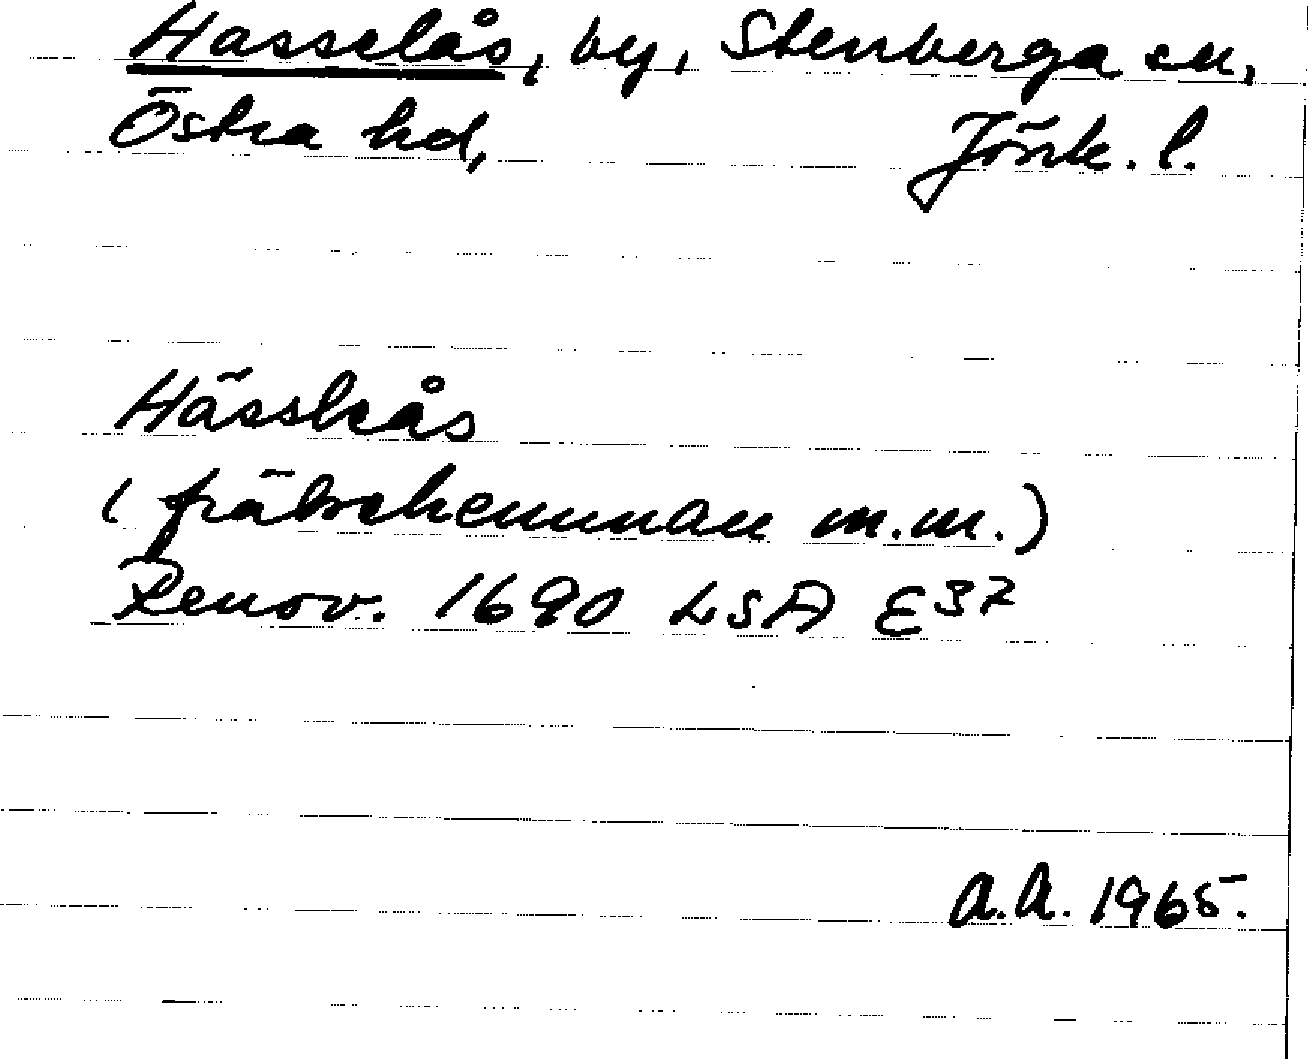 Hasselås, by, Stenberga sn,
Östra hd, Jönk. l.
Hässleås
(frälsehemman m.m.)
Renov. 1690 LSA E37
A.A. 1965.